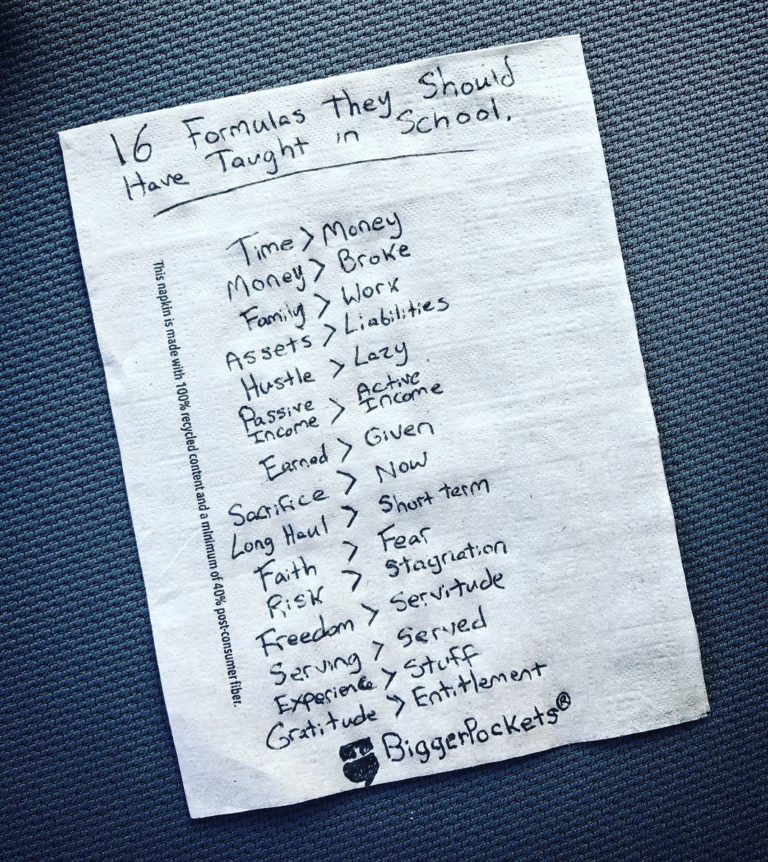 16 Formulas they Should
Have Taught in School.
Time > Money
Money > Broke
Family > Work
Assets > Liabilities
Hustle > Lazy
Passive Income > Active Income
Earned > Given
Sacrifice > Now
Long Haul > Short term
Faith > Fear
Risk > Stagnation
Freedom > Servitude
Serving > Served
Experience > Stuff
Gratitude > Entitlement
BiggerPockets®
This napkin is made with 100% recycled content and a minimum of 40% post-consumer fiber.